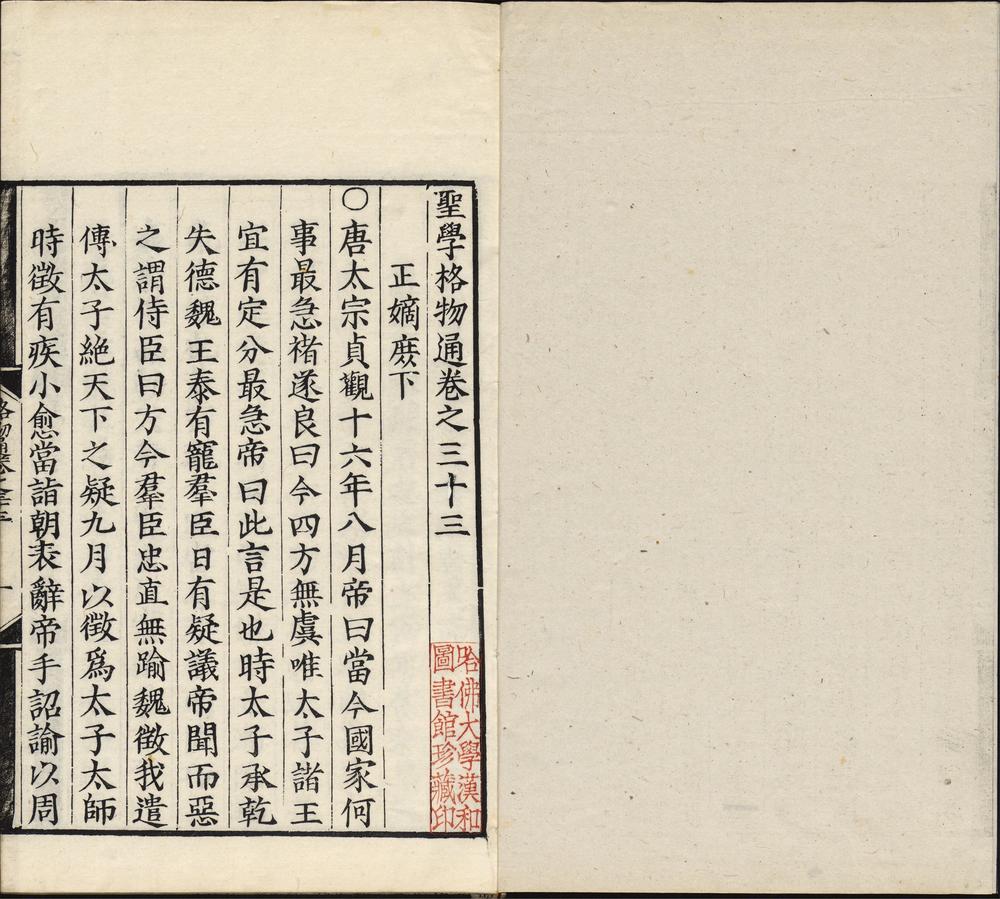 聖學格物通卷之三十三
正嫡庶下
○唐太宗貞觀十六年八月帝曰當今國家何
事最急褚遂良曰今四方無虞唯太子諸王
宜有定分最急帝曰此言是也時太子承乾
失德魏王泰有寵羣臣日有疑議帝聞而惡
之謂侍臣曰方今羣臣忠直無踰魏徵我遣
傳太子絶天下之疑九月以徵爲太子太師
時徵有疾小愈當詣朝表辭帝手詔諭以周
哈佛大學漢和
圖書館珍藏印